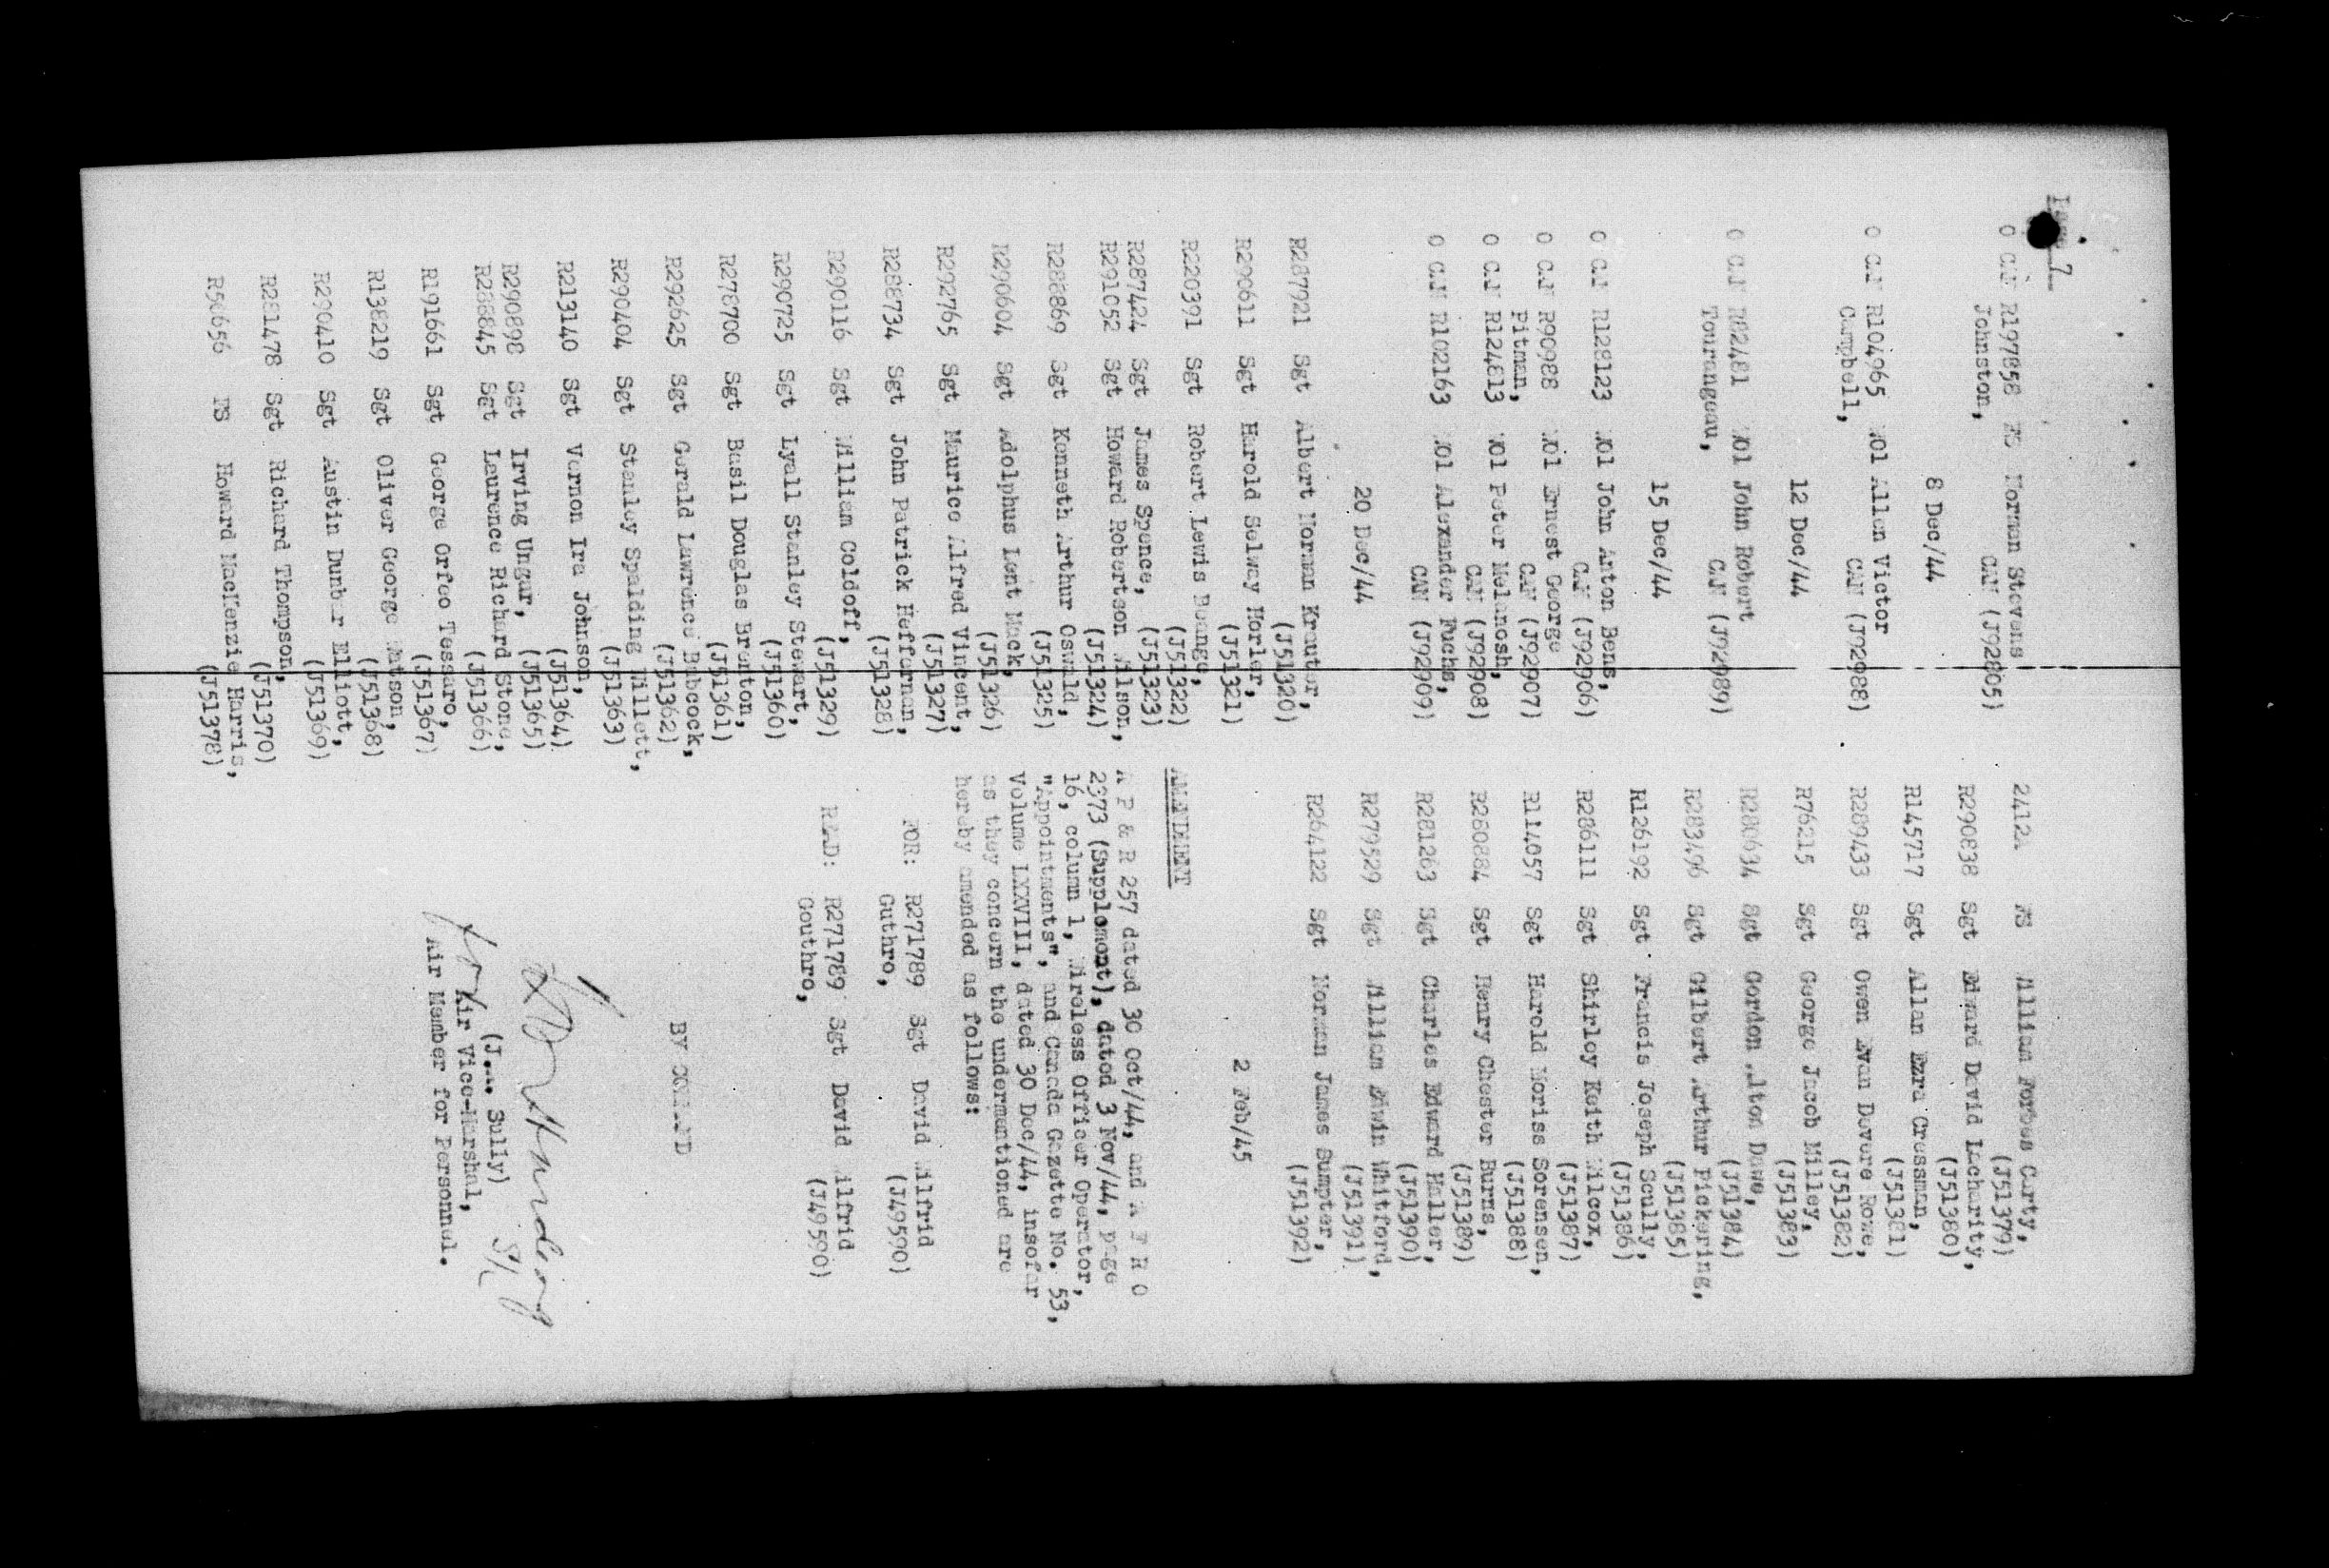 Page 7
O CAN R197858 FS Norman Stevens
Johnston, CAN (J92805)
8 Dec/44
O CAN R104965 WO1 Allen Victor
Campbell, CAN (J92988)
12 Dec/44
O CAN R82481 WO1 John Robert
Tourangeau, CAN (J92989)
15 Dec/44
O CAN R128123 WO1 John Anton Bens,
CAN (J92906)
O CAN R90988 WO1 Ernest George
Pitman, CAN (J92907)
O CAN R124813 WO1 Peter Melanosh,
CAN (J92908)
O CAN R102163 WO1 Alexander Fuchs,
CAN (J92909)
20 Dec/44
R287921 Sgt Albert Norman Krauter,
(J51320)
R290611 Sgt Harold Selway Horler,
(J51321)
R220391 Sgt Robert Lewis
(J51322)
R287424 Sgt James Spence, (J51323)
R291052 Sgt Howard Robertson Wilson,
(J51324)
R288869 Sgt Kenneth Arthur Oswald,
(J51325)
R290604 Sgt Adolphus Lent Mack,
(J51326)
R292765 Sgt Maurice Alfred Vincent,
(J51327)
R288734 Sgt John Patrick Heffernan,
(J51328)
R290116 Sgt William Coldoff,
(J51329)
R290725 Sgt Lyall Stanley Stewart,
(J51360)
R278700 Sgt Basil Douglas Brenton,
(J51361)
R292625 Sgt Gerald Lawrence Babcock,
(J51362)
R290404 Sgt Stanley Spalding Willett,
(J51363)
R213140 Sgt Vernon Ira Johnson,
(J51364)
R290898 Sgt Irving Ungar, (J51365)
R288845 Sgt Laurence Richard Stone,
(J51366)
R191661 Sgt George Orfeo Tessaro,
(J51367)
R138219 Sgt Oliver George Watson,
(J51368)
R290410 Sgt Austin Dunbar Elliott,
(J51369)
R281478 Sgt Richard Thompson,
(J51370)
FS Howard MacKenzie Harris,
(J51378)
2412A FS William Forbes Carty,
(J51379)
R290838 Sgt Edward David Lacharity,
(J51380)
R145717 Sgt Allan Ezra Cressman,
(J51381)
R289433 Sgt Owen Evan Devere Rowe,
(J51382)
R76215 Sgt George Jacob Milley,
(J51383)
R280634 Sgt Gordon Alton Dawe,
(J51384)
R283496 Sgt Gilbert Arthur Pickering,
(J51385)
R126192 Sgt Francis Joseph Scully,
(J51386)
R286111 Sgt Shirley Keith Wilcox,
(J51387)
R114057 Sgt Harold Noriss Sorensen,
(J51388)
R280884 Sgt Henry Chester Burns,
(J51389)
R281263 Sgt Charles Edward Haller,
(J51390)
R279529 Sgt William Edwin Whitford,
(J51391)
R264122 Sgt Norman James Sumpter,
(J51392)
2 Feb/45
AMENDMENT
A P & R 257 dated 30 Oct/44, and A F R O
2373 (Supplement), dated 3 Nov/44, page
16, column 1, Wireless Officer Operator,
"Appointments", and Canada Gazette No. 53,
Volume LXXVIII, dated 30 Dec/44, insofar
as they concern the undermentioned are
hereby amended as follows:
FOR: R271789 Sgt David Wilfrid
Guthro, (J49590)
READ: R271789 Sgt David Wilfrid
Gouthro, (J49590)
BY COMMAND
for (J.A. Sully)
Air Vice-Marshal,
Air Member for Personnel.